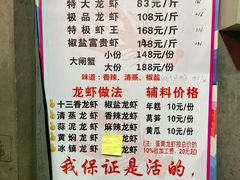 特大龙虾 83元/斤
极品龙虾 108元/斤
特级虾王 168元/斤
椒盐富贵虾 148元/斤
大闸蟹 小份 148元/份
大份 188元/份
味道：香辣、清蒸、椒盐
龙虾做法 辅料价格
十三香龙虾 椒盐龙虾 年糕 10元/份
清蒸龙虾 香辣龙虾 莴笋 10元/份
蒜泥龙虾 麻辣龙虾 黄瓜 10元/份
黄焖龙虾
冰镇龙虾
我保证是活的，